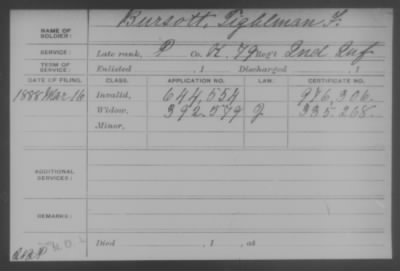 NAME OF SOLDIER: Bursott, Tighlman F.
SERVICE: Late rank, P Co. K, 79 Reg't Ind Inf
TERM OF SERVICE: Enlisted , 1 Discharged , 1
DATE OF FILING. CLASS. APPLICATION NO. LAW. CERTIFICATE NO.
1888 Mar 16 Invalid, 644,554 976,306.
Widow, 392.579 335.268.
Minor,
ADDITIONAL SERVICES:
REMARKS:
Died , 1 , at